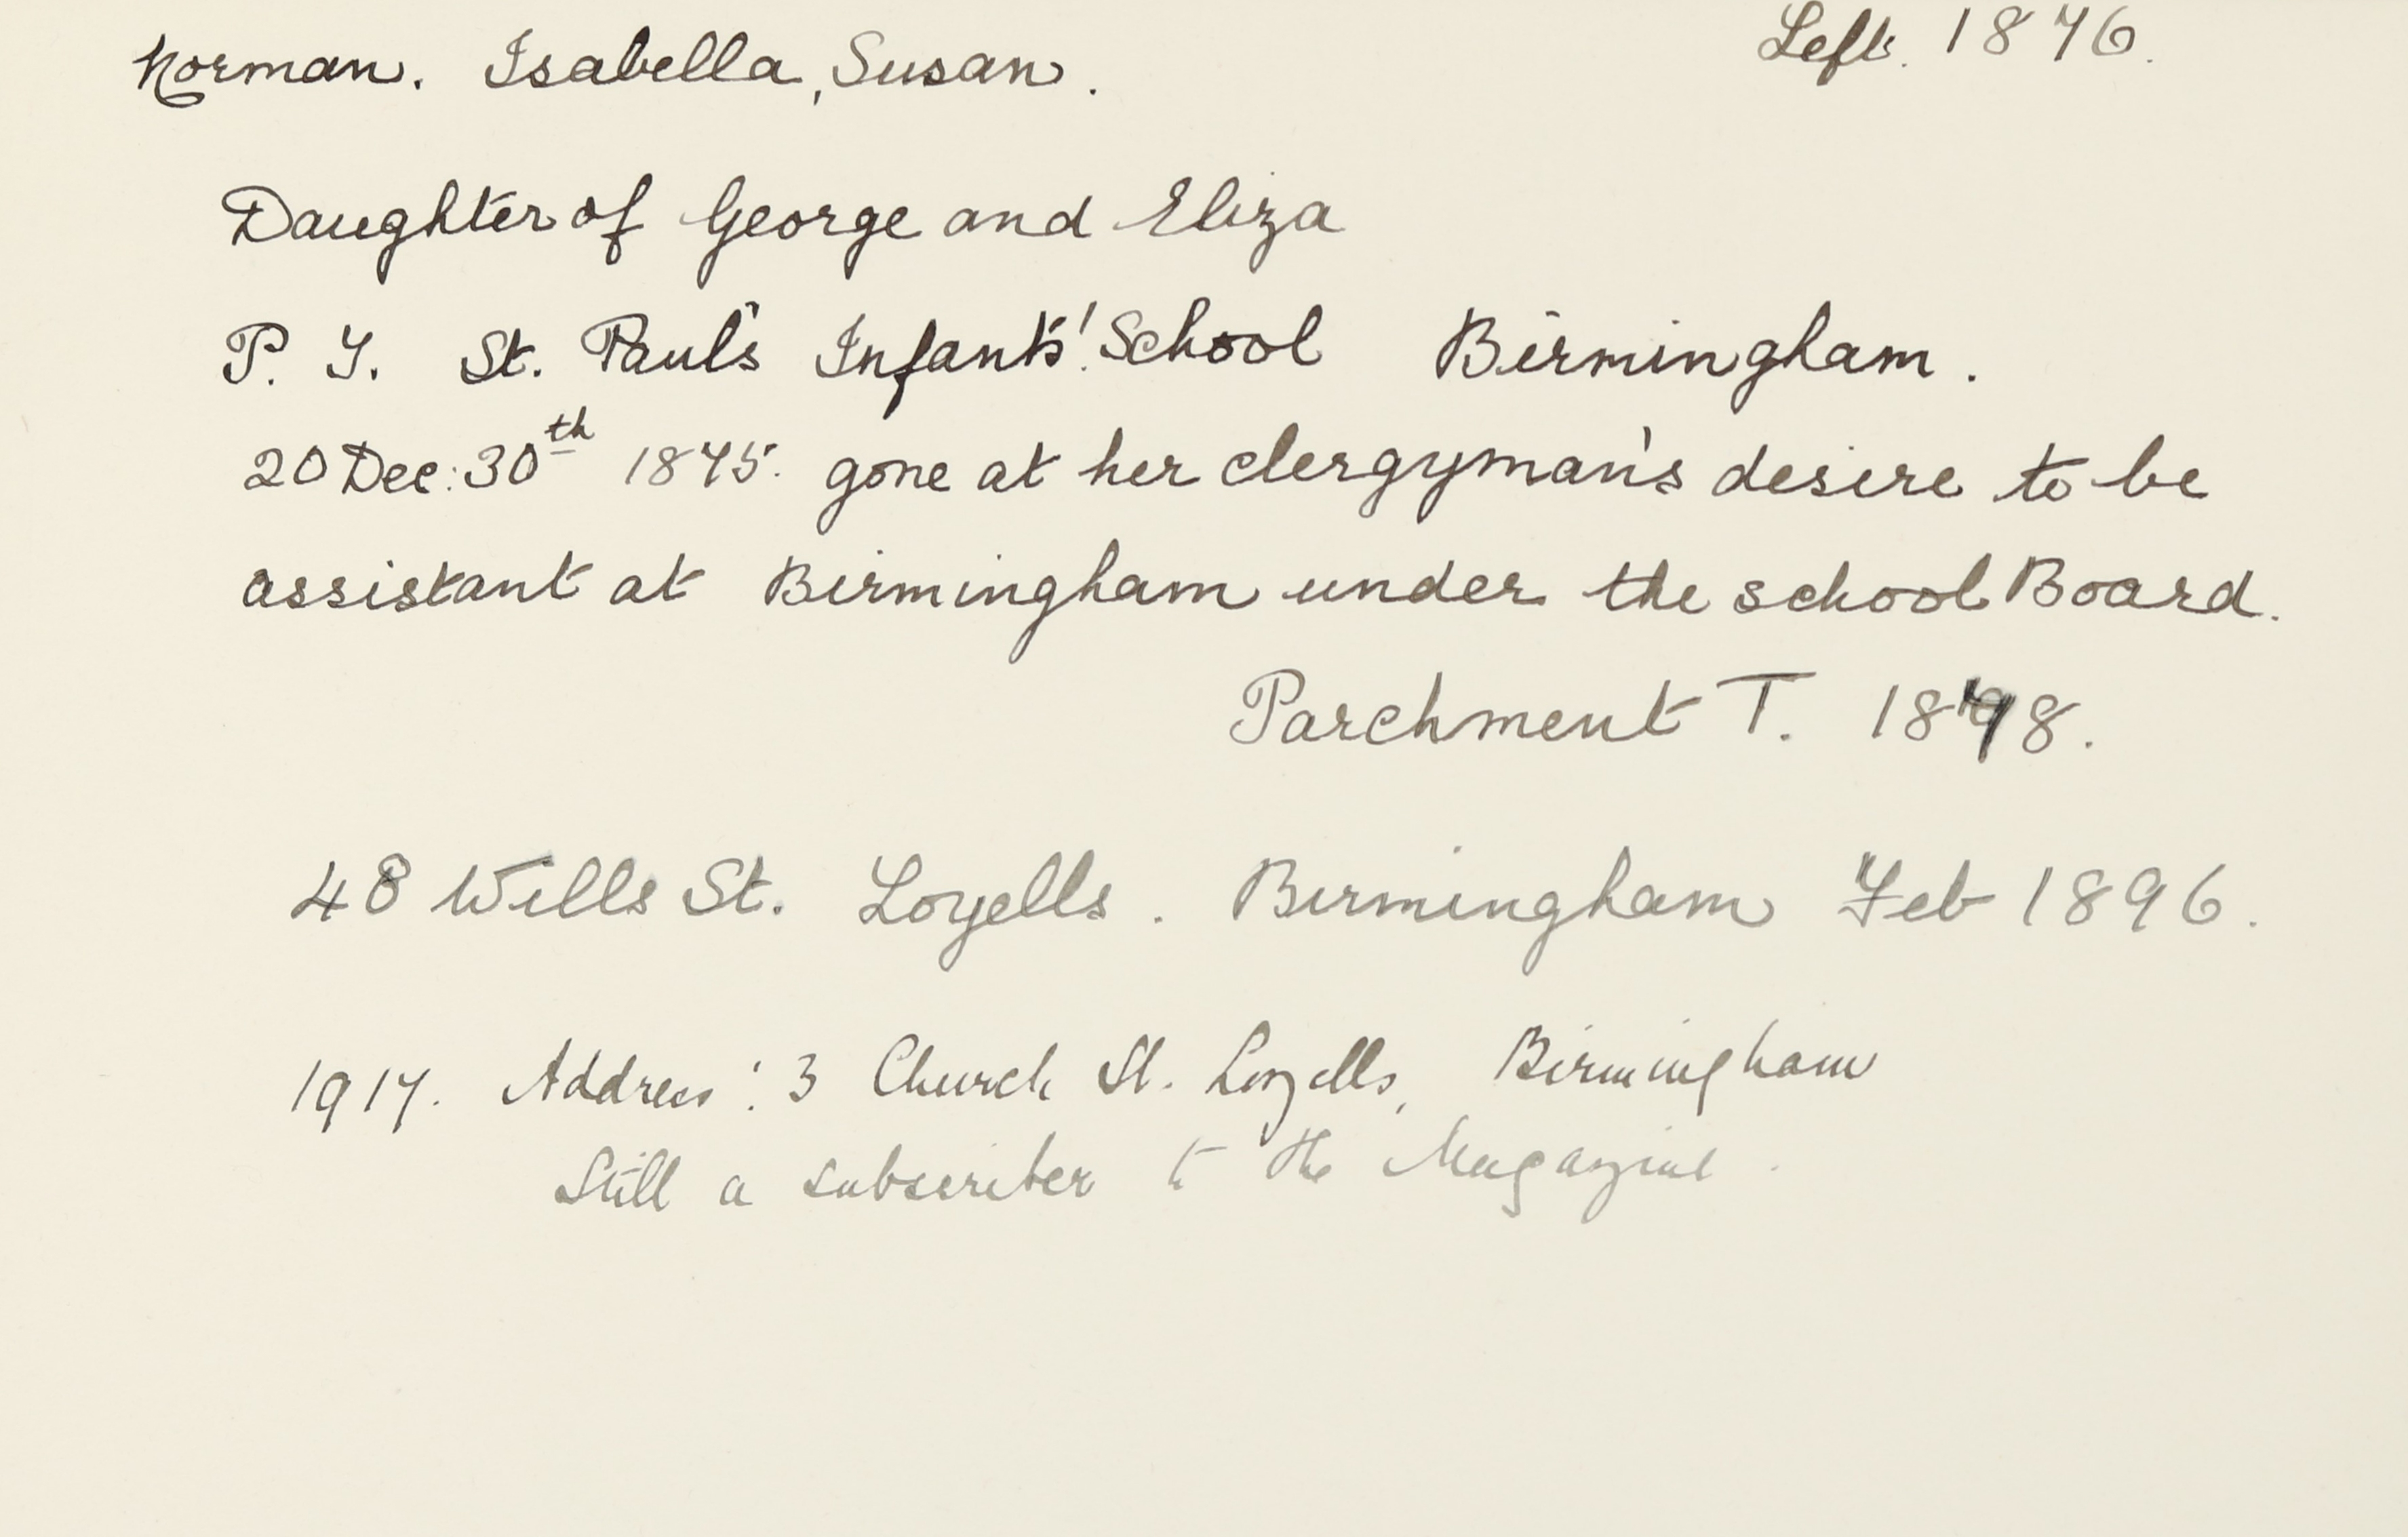 Norman. Isabella, Susan. Left. 1876.
Daughter of George and Eliza
P. T. St. Paul's Infants'. School Birmingham.
20 Dec: 30th 1875. gone at her clergyman's desire to be
assistant at Birmingham under the school Board.
Parchment T. 1878.
48 Wills St. Lozells. Birmingham Feb 1896.
1917. Address: 3 Church St. Lozells, Birmingham
Still a subscriber to the Magazine.